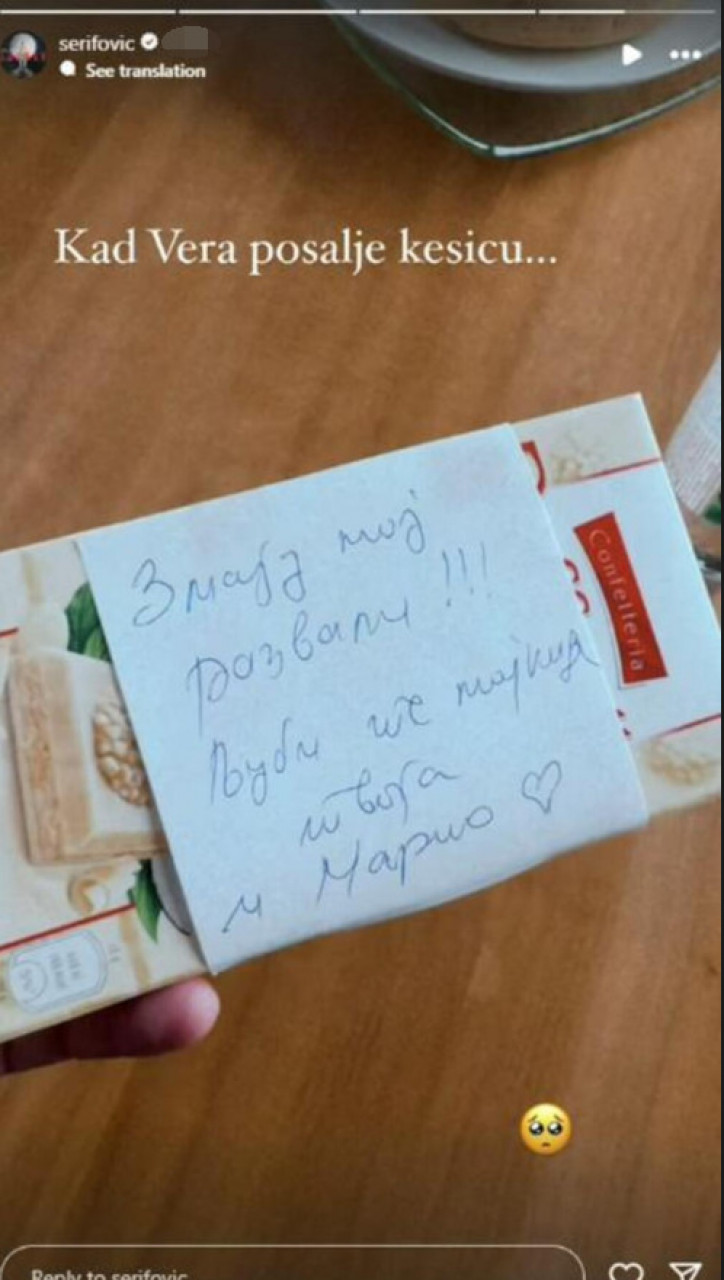 serifovic
See translation
Kad Vera posalje kesicu...
Змају мој
развали !!!
Љуби те мајкица
твоја
и Марио ♡
Confetteria
🥺
Reply to serifovic